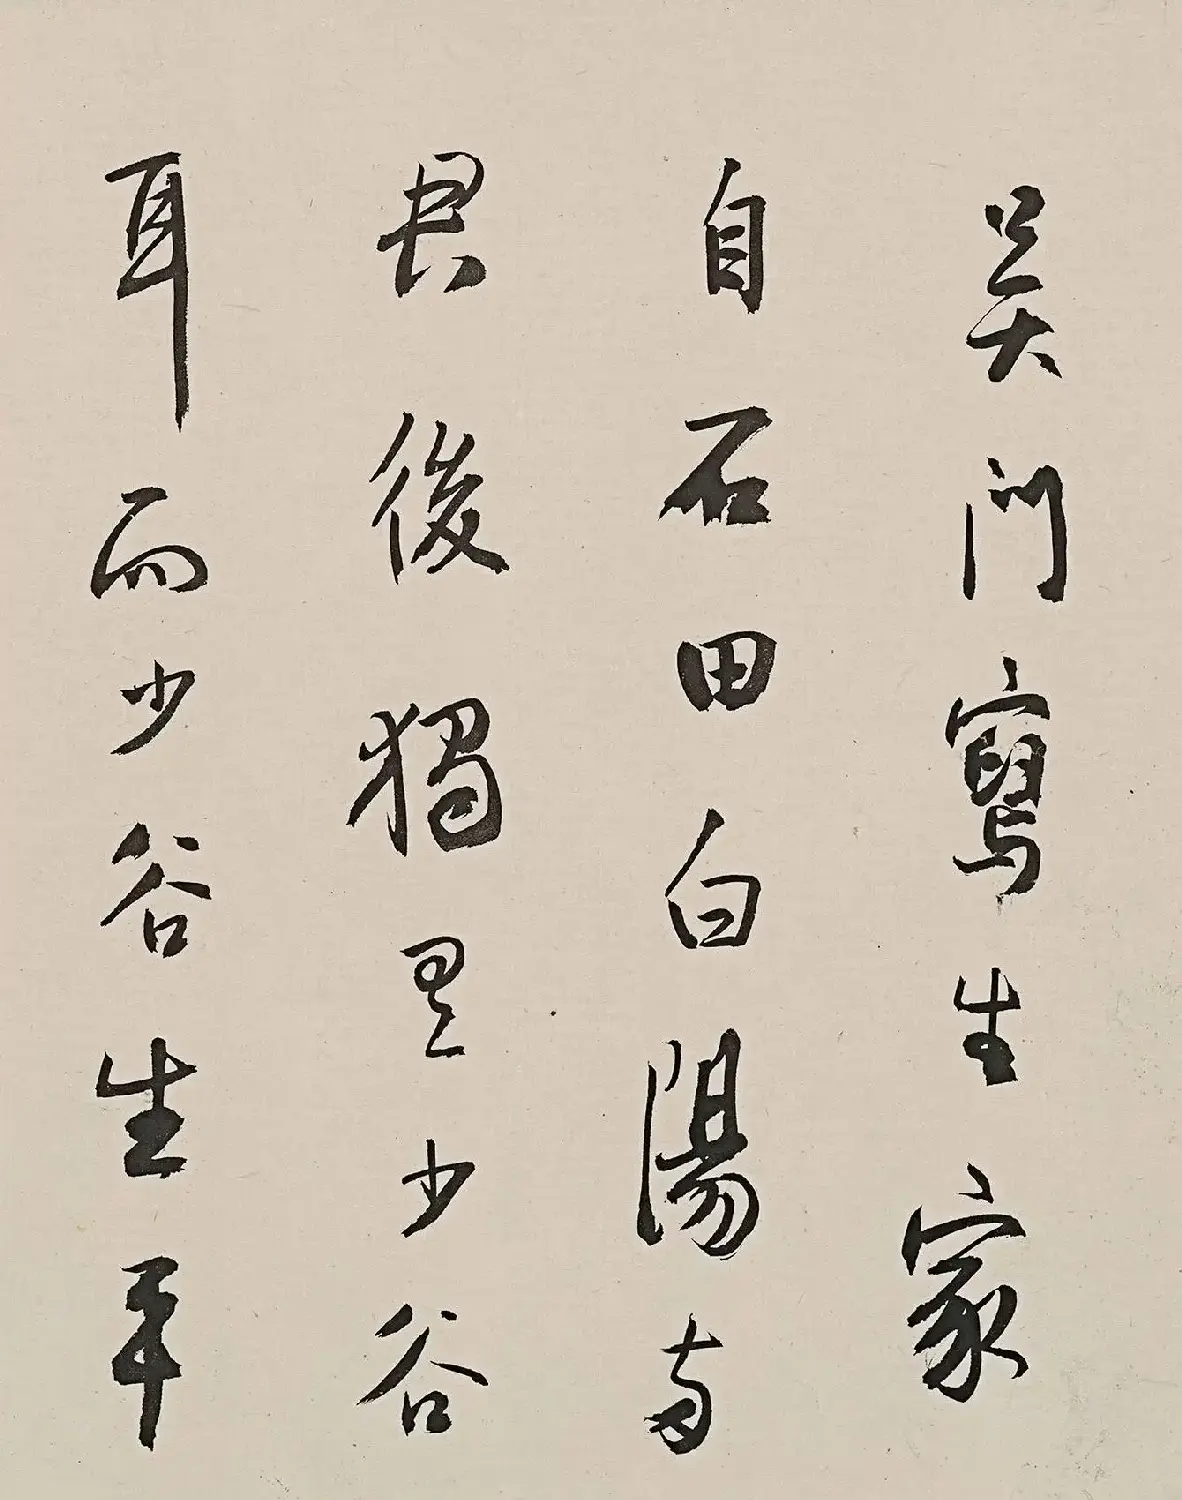 吳門寫生家
自石田白陽兩
君後獨見少谷
耳而少谷生平